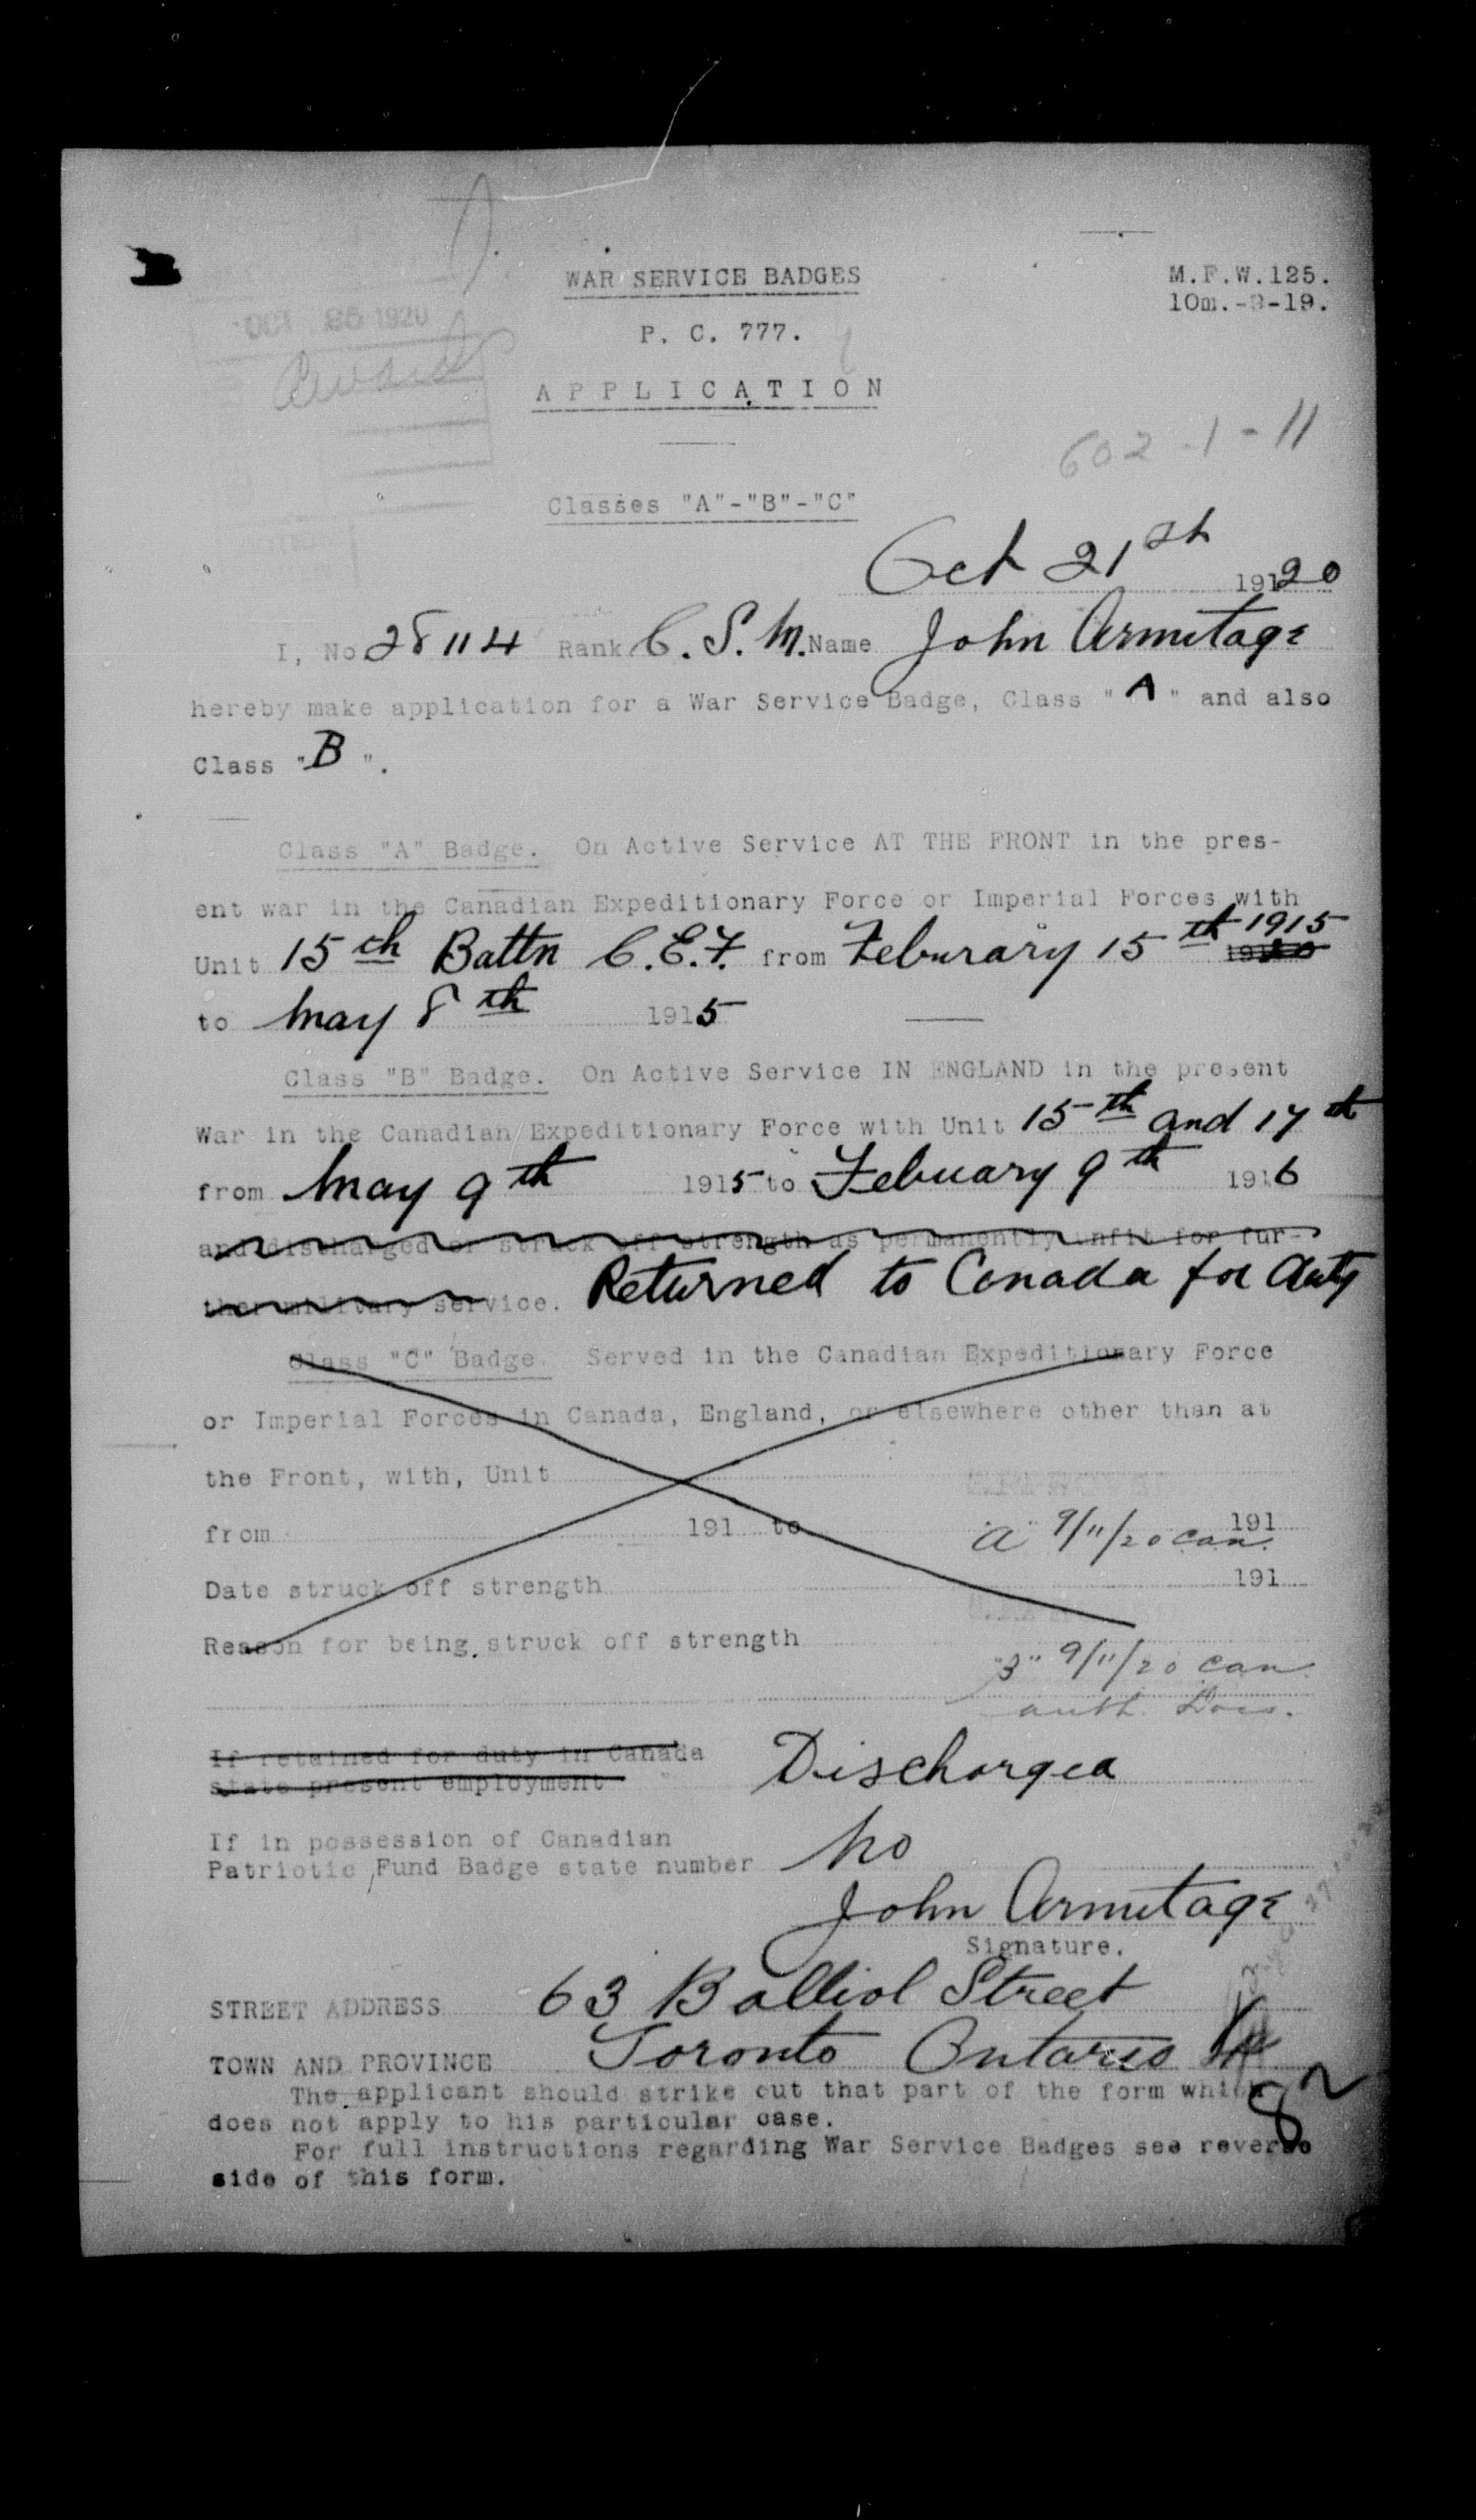 WAR SERVICE BADGES
M.F.W.125.
10m.-3-19.
OCT 25 1920
P. C. 777.
Award
APPLICATION
602-1-11
Classes "A"-"B"-"C"
Oct 21st 19120
I, No. 28114 Rank C.S.M. Name John Armitage
hereby make application for a War Service Badge, Class "A" and also
Class "B".
Class "A" Badge. On Active Service AT THE FRONT in the pres-
ent war in the Canadian Expeditionary Force or Imperial Forces with
Unit 15th Battn C.E.F. from Feburary 15th 1915
to May 8th 1915
Class "B" Badge. On Active Service IN ENGLAND in the present
War in the Canadian Expeditionary Force with Unit 15th and 17th
from May 9th 1915 to Febuary 9th 1916
and discharged or struck off strength as permanently unfit for fur-
ther military service. Returned to Canada for duty
Class "C" Badge. Served in the Canadian Expeditionary Force
or Imperial Forces in Canada, England, or elsewhere other than at
the Front, with, Unit
from 191 to 191
"A" 9/11/20 Can.
Date struck off strength 191
Reason for being struck off strength
"B" 9/11/20 Can.
auth. Docs.
If retained for duty in Canada
state present employment
Discharged
If in possession of Canadian
Patriotic Fund Badge state number No
John Armitage
Signature.
STREET ADDRESS 63 Balliol Street
TOWN AND PROVINCE Toronto Ontario
The applicant should strike out that part of the form which
does not apply to his particular case.
For full instructions regarding War Service Badges see reverse
side of this form.